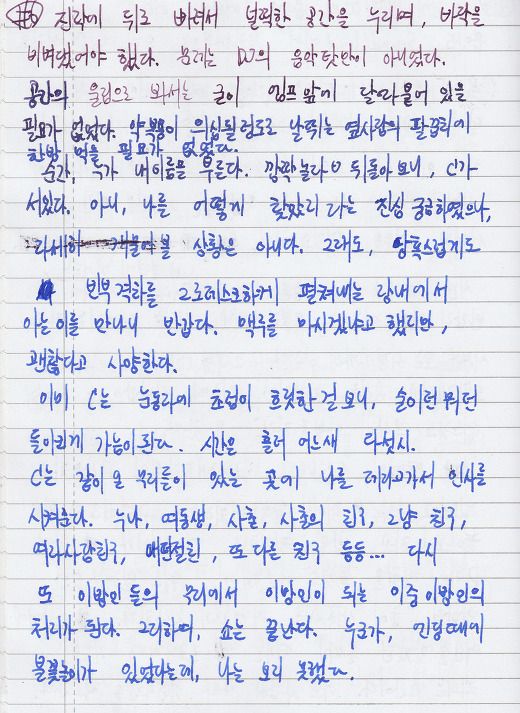 #6 진작에 뒤로 빠져서 널찍한 공간을 누리며, 바닥을
비벼댔어야 했다. 문제는 DJ의 음악 탓만이 아니었다.
공간의 울림으로 봐서는 굳이 앰프앞에 달라붙어 있을
필요가 없었다. 약복용이 의심될정도로 날뛰는 옆사람의 팔꿈치에
한방 먹을 필요가 없었다.
순간, 누가 내이름을 부른다. 깜짝 놀라 뒤돌아보니, C가
서있다. 아니, 나를 어떻게 찾았지 라는 진심 궁금하였으나,
상황은 아니다. 그래도, 당혹스럽게도
빈부격차를 그로테스크하게 펼쳐내는 랑내에서
아는이를 만나니 반갑다. 맥주를 마시겠냐고 했지만,
괜찮다고 사양한다.
이미 C는 눈동자에 초점이 흐릿한 걸 보니, 술이던 뭐던
들이킨게 가늠이 된다. 시간은 흘러 어느새 다섯시.
C는 같이 온 무리들이 있는 곳에 나를 데려가서 인사를
시켜준다. 누나, 여동생, 사촌, 사촌의 친구, 그냥 친구,
여자사람친구, 또 다른 친구 등등... 다시
또 이방인들의 무리에서 이방인이 되는 이중이방인의
처리가 된다. 그리하여, 쇼는 끝난다. 누군가, 엔딩때에
불꽃놀이가 있었다는데, 나는 보지 못했다.